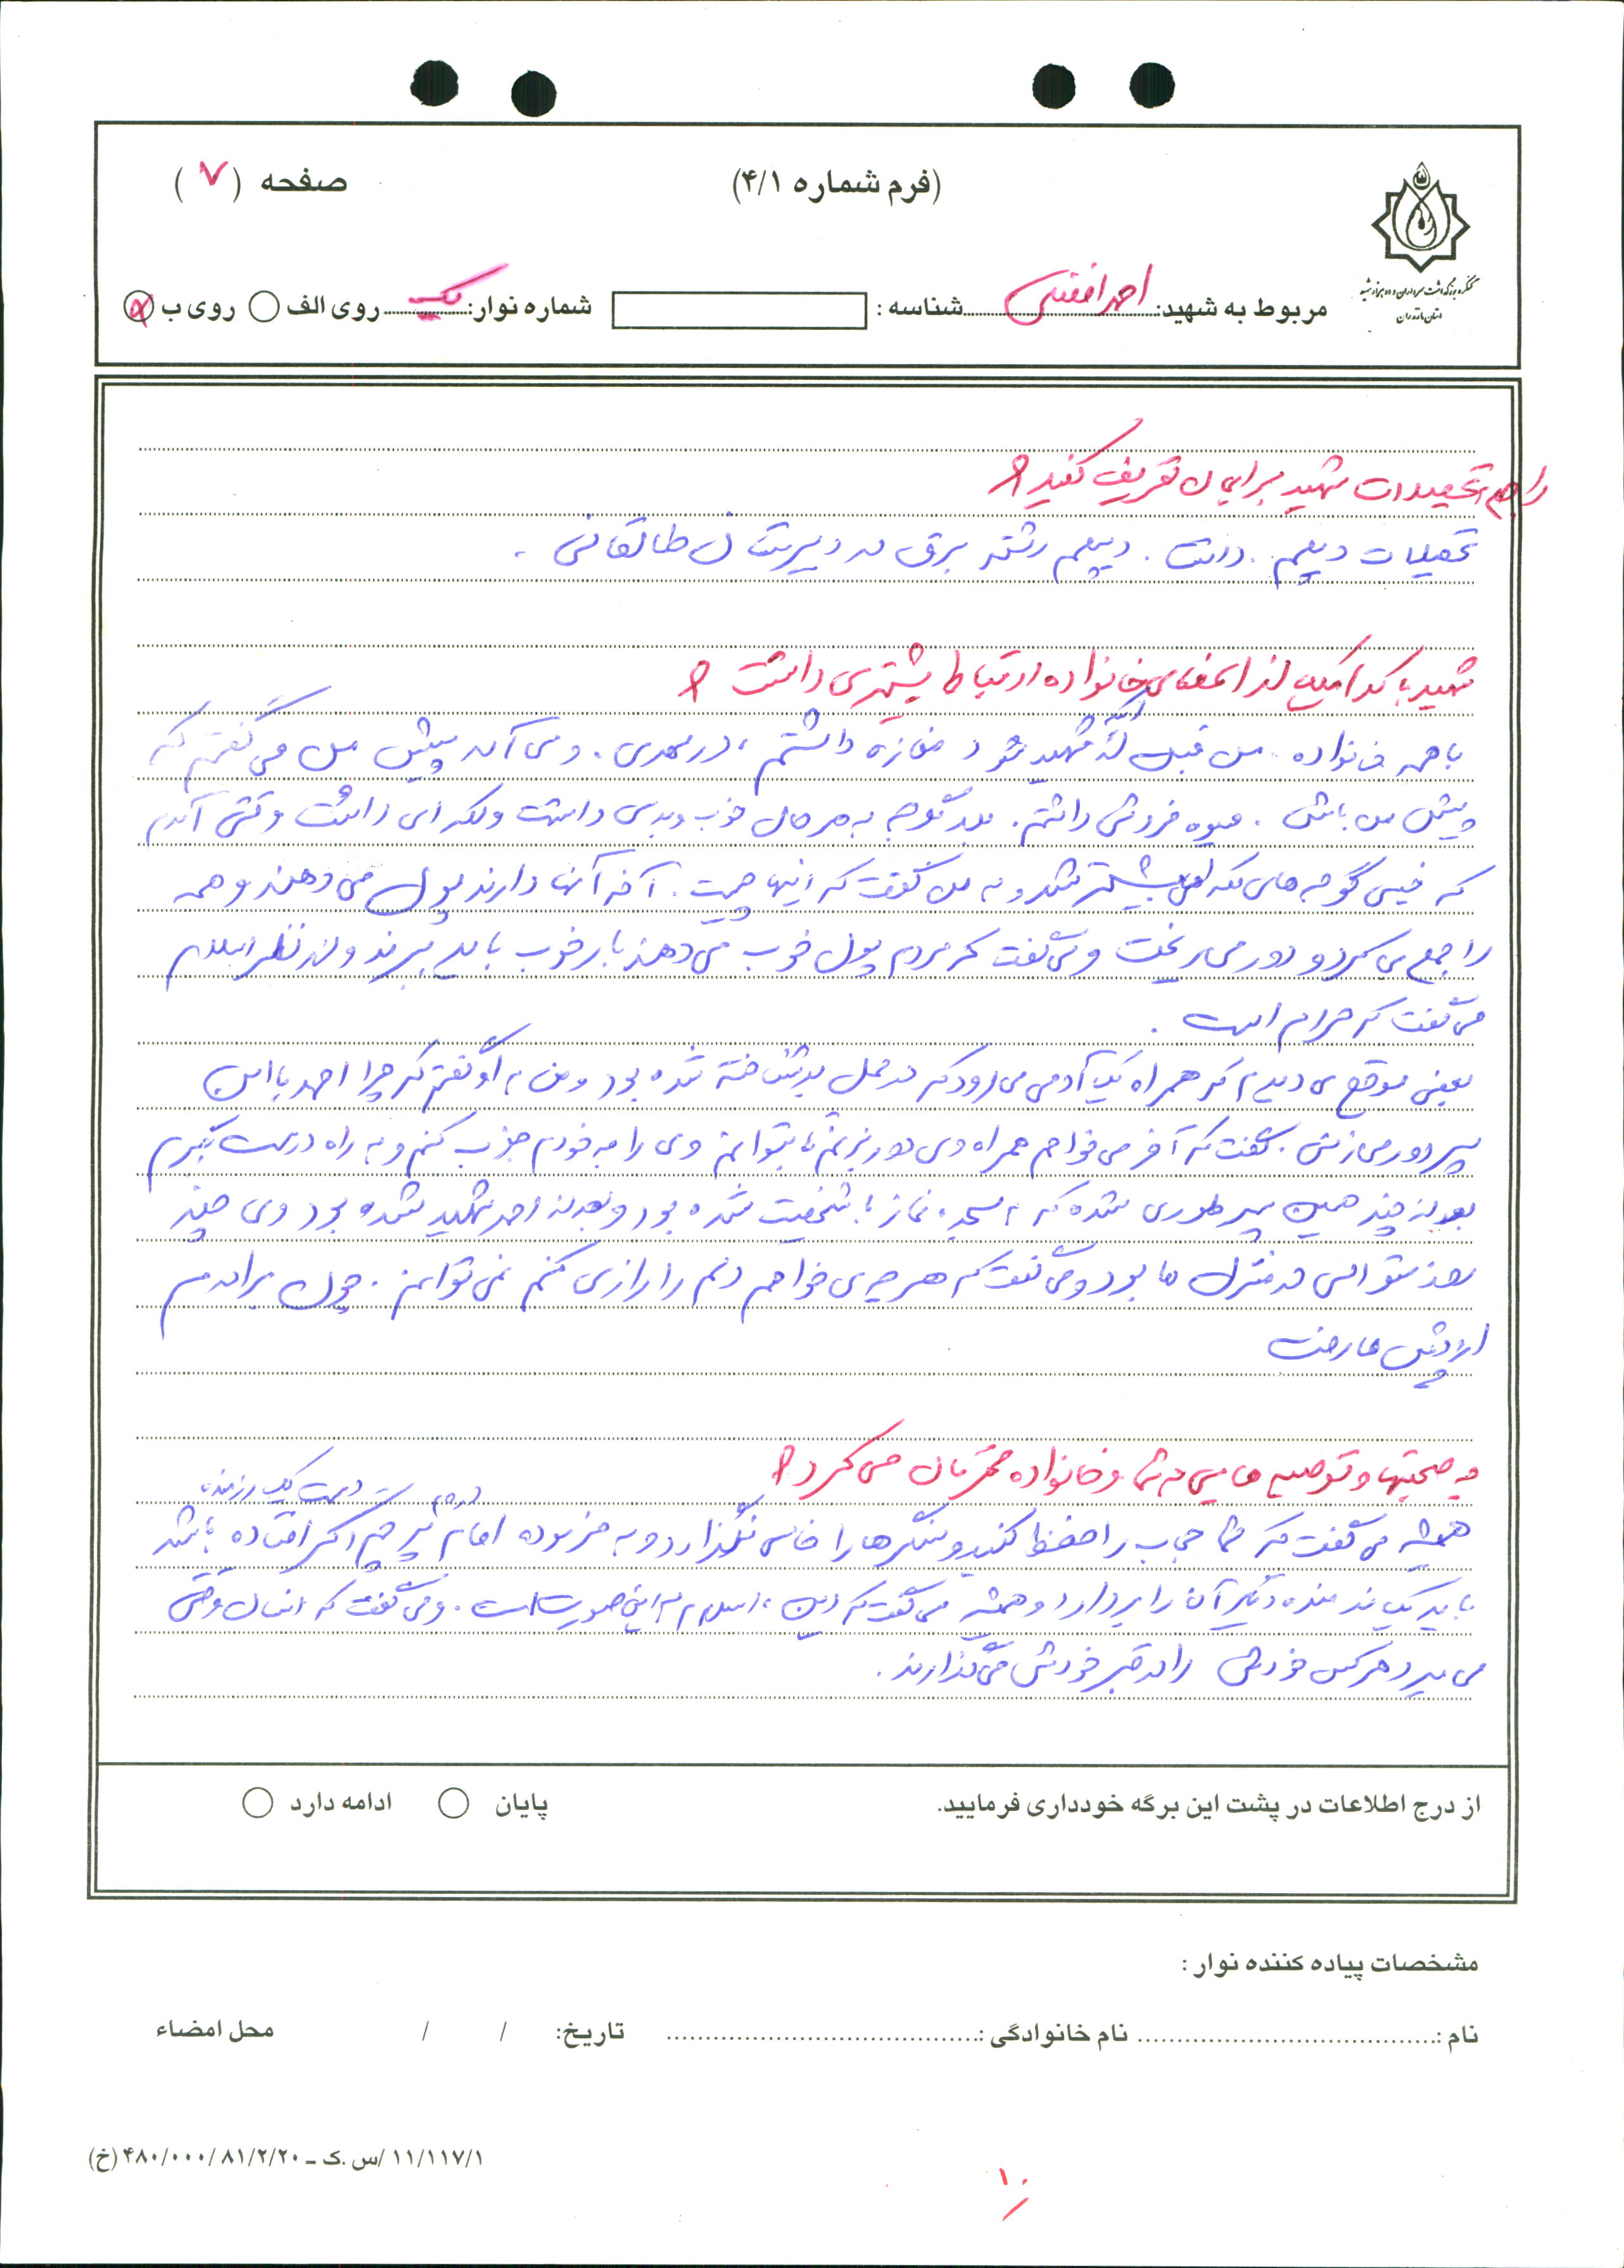 (فرم شماره ۴/۱)
صفحه (۷)
کنگره بزرگداشت سرداران و ده هزار شهید
استان مازندران
مربوط به شهید: احمد افقهی شناسه : شماره نوار: یک روی الف روی ب
راجع تحصیلات شهید برایمان تعریف کنید؟
تحصیلات دیپلم . داشت . دیپلم رشته برق در دبیرستان طالقانی .
شهید با کدامیک از اعضای خانواده ارتباط بیشتری داشت ؟
با همه خانواده . من قبل از اینکه شهید شود مغازه داشتم ، در مهدی . و می آمد پیش من می گفتم که
پیش من باش . میوه فروشی داشتم . بعد گوجه به هر حال خوب و بدی داشت و لکه ای داشت وقتی آمدم
که خیس گوجه های لکه ای بیشتر شد و به من گفت که اینها چیست . آخه آنها دارند پول می دهند و همه
را جمع می کرد و دور می ریخت و می گفت که مردم پول خوب می دهند بار خوب باید ببرند و از نظر اسلام
می گفت که حرام است .
بعضی موقع می دیدم که همراه یک آدمی می رود که در محل بد شناخته شده بود و من به او گفتم که چرا احمد با این
پسر دور می زنی . گفت که آخر می خواهم همراه وی دور بزنم تا بتوانم وی را به خودم جذب کنم و به راه درست بگیرم
بعد از چند همین پسر طوری شده که به مسجد ، نماز با شخصیت شده بود و بعد از احمد شهید شده بود وی چند
روز متوالی در منزل ما بود و می گفت که هر چه می خواهم دلم را رازی کنم نمی توانم . چون برادرم
از پیش ما رفت
چه صحبتها و توصیه هایی به شما و خانواده محترمتان می کرد ؟
همیشه می گفت که شما حجاب را حفظ کنید و سنگرها را خالی نگذارد و به فرموده امام که پرچم اگر افتاده باشد
در دست یک رزمنده
باید یک رزمنده دیگر آن را بردارد و همیشه می گفت که دین ، اسلام به این صورت است . و می گفت که انسان وقتی
می میرد هر کس خودش را در قبر خودش می گذارند .
از درج اطلاعات در پشت این برگه خودداری فرمایید.
پایان ادامه دارد
مشخصات پیاده کننده نوار :
نام : نام خانوادگی : تاریخ: / / محل امضاء
۱۱/۱۱۷/۱ /س .ک ـ ۴۸۰/۰۰۰/۸۱/۲/۲۰ (خ)
۱۰